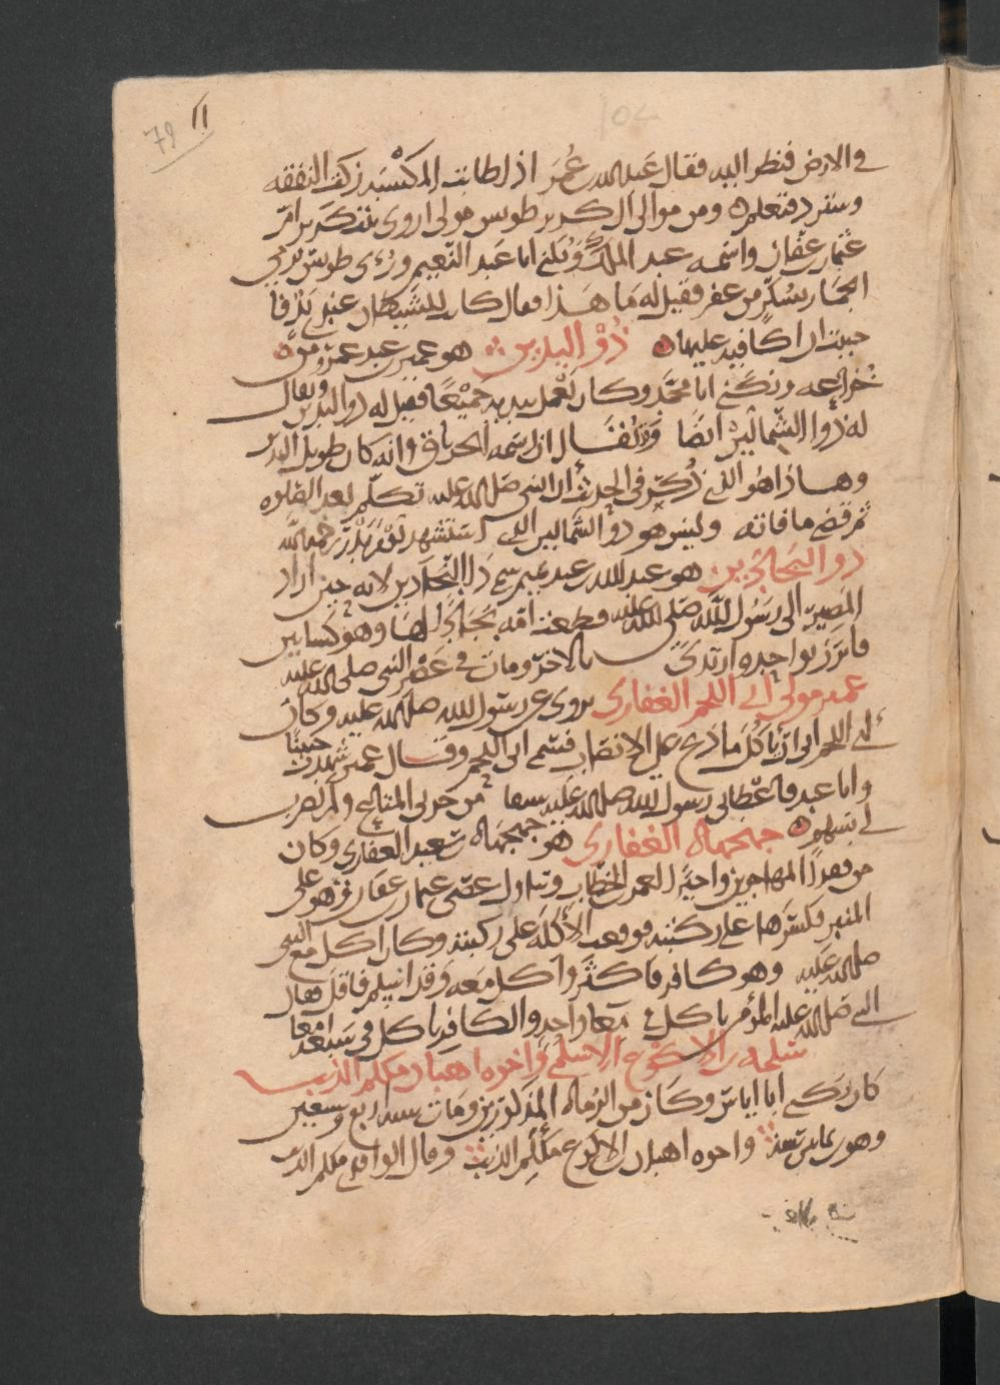 79 11
في الارض فنظر اليه فقال عبد الله بن عمر اذا طابت المكسبة زكت النفقة
وسترد فتعلم ومن موالي ال كريز طويس مولى اروى بنت كريز ام
عثمان بن عفان واسمه عبد الملك ويكنى ابا عبد النعيم ورؤي طويس يرمي
الجمار بسكر من عفر فقيل له ما هذا فقال كان للشيطان عندي يد فا
حببت ان اكافيه عليها ذو اليدين هو عمير بن عبد عمرو من
خزاعه ويكنى ابا محمد وكان يعمل بيديه جميعا فقيل له ذو اليدين ويقال
له ذوا الشمالين ايضا ويقال ان اسمه الخرباق وانه كان طويل اليد
وهاذا هو الذي ذكر في الحديث ان النبي صلى الله عليه تكلم بعد الصلوه
ثم قضى ما فاته وليس هو ذو الشمالين الذي استشهد يوم بدر رحمه الله
ذو البجادين هو عبد الله بن عبد نهم سمي ذا البجادين لانه حين اراد
المصير الى رسول الله صلى الله عليه قطعت امه بجادا لها وهو كسا باثنين
فاتزر بواحد وارتدى بالاخر ومات في عصر النبي صلى الله عليه
عمير مولى ابي اللحم الغفاري يروي عن رسول الله صلى الله عليه وكان
ابي اللحم ابى ان ياكل ما ذبح على الانصاب فسمي ابي اللحم وقال عمير شهدت حنينا
وانا عبد فاعطاني رسول الله صلى الله عليه سيفا من خرثي المتاع ولم يضرب
لي بسهم جهجاه الغفاري هو جهجاه بن سعيد الغفاري وكان
من فقرا المهاجرين واجيرا لعمر بن الخطاب وتناول عصى عثمان بن عفان وهو على
المنبر فكسرها على ركبتيه فوقعت الاكله على ركبته وكان اكل مع النبي
صلى الله عليه وهو كافر فاكثر واكل معه وقد اسلم فاقل فقال
النبي صلى الله عليه المؤمن ياكل في معا واحد والكافر ياكل في سبعة امعا
سلمه بن الاكوع الاسلمي واخوه اهبان مكلم الذيب
كان يكنى ابا اياس وكان من الرماه المذكورين ومات سنه اربع وسبعين
وهو ابن ثمانين سنة واخوه اهبان بن الاكوع مكلم الذيب وقال الواقدي مكلم الذيب